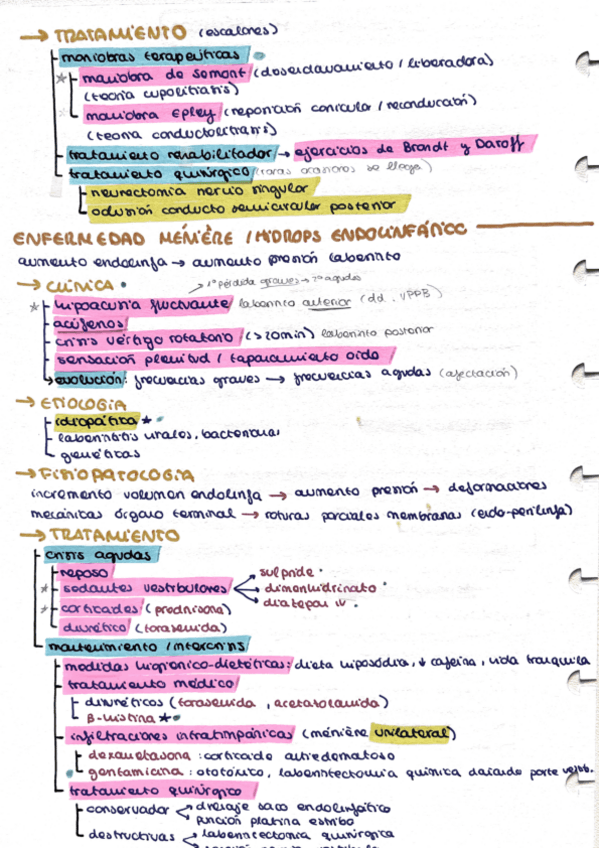 → TRATAMIENTO (escalones)
maniobras terapeúticas
* maniobra de semont (desenclavamiento / liberadora)
(teoría cupolitiasis)
maniobra Epley (reposición canicular / reconducción)
(teoría conductolitiasis)
tratamiento rehabilitador → ejercicios de Brandt y Daroff
tratamiento quirúrgico (raras ocasiones se llega)
neurectomia nervio singular
oclusión conducto semicircular posterior
ENFERMEDAD MÉNIÈRE / HIDROPS ENDOLINFÁTICO
aumento endolinfa → aumento presión laberinto
→ CLÍNICA → 1º pérdida graves → 2º agudos
* hipoacusia fluctuante laberinto anterior (dd. VPPB)
acúfenos
crisis vértigo rotatorio (>20min) laberinto posterior
sensación plenitud / taponamiento oído
evolución: frecuencias graves → frecuencias agudas (afectación)
→ ETIOLOGÍA
idiopática *
laberintitis virales, bacterianas
genéticas
→ FISIOPATOLOGÍA
incremento volumen endolinfa → aumento presión → deformaciones
mecánicas órgano terminal → roturas parciales membranas (endo-perilinfa)
→ TRATAMIENTO
crisis agudas
reposo
* sedantes vestibulares sulpiride
dimenhidrinato
diazepan iv
* corticoides (prednisona)
diurético (torasemida)
mantenimiento / intercrisis
medidas higienico-dietéticas: dieta hiposódica, ↓ cafeína, vida tranquila
tratamiento médico
diuréticos (torasemida, acetazolamida)
B-histina *
infiltraciones intratimpánicas (ménière unilateral)
dexametasona: corticoide antiedematoso
gentamicina: ototóxico, laberintectomía química dañando parte vestib.
tratamiento quirúrgico
conservador drenaje saco endolinfático
punción platina estribo
destructivas laberintectomía quirúrgica